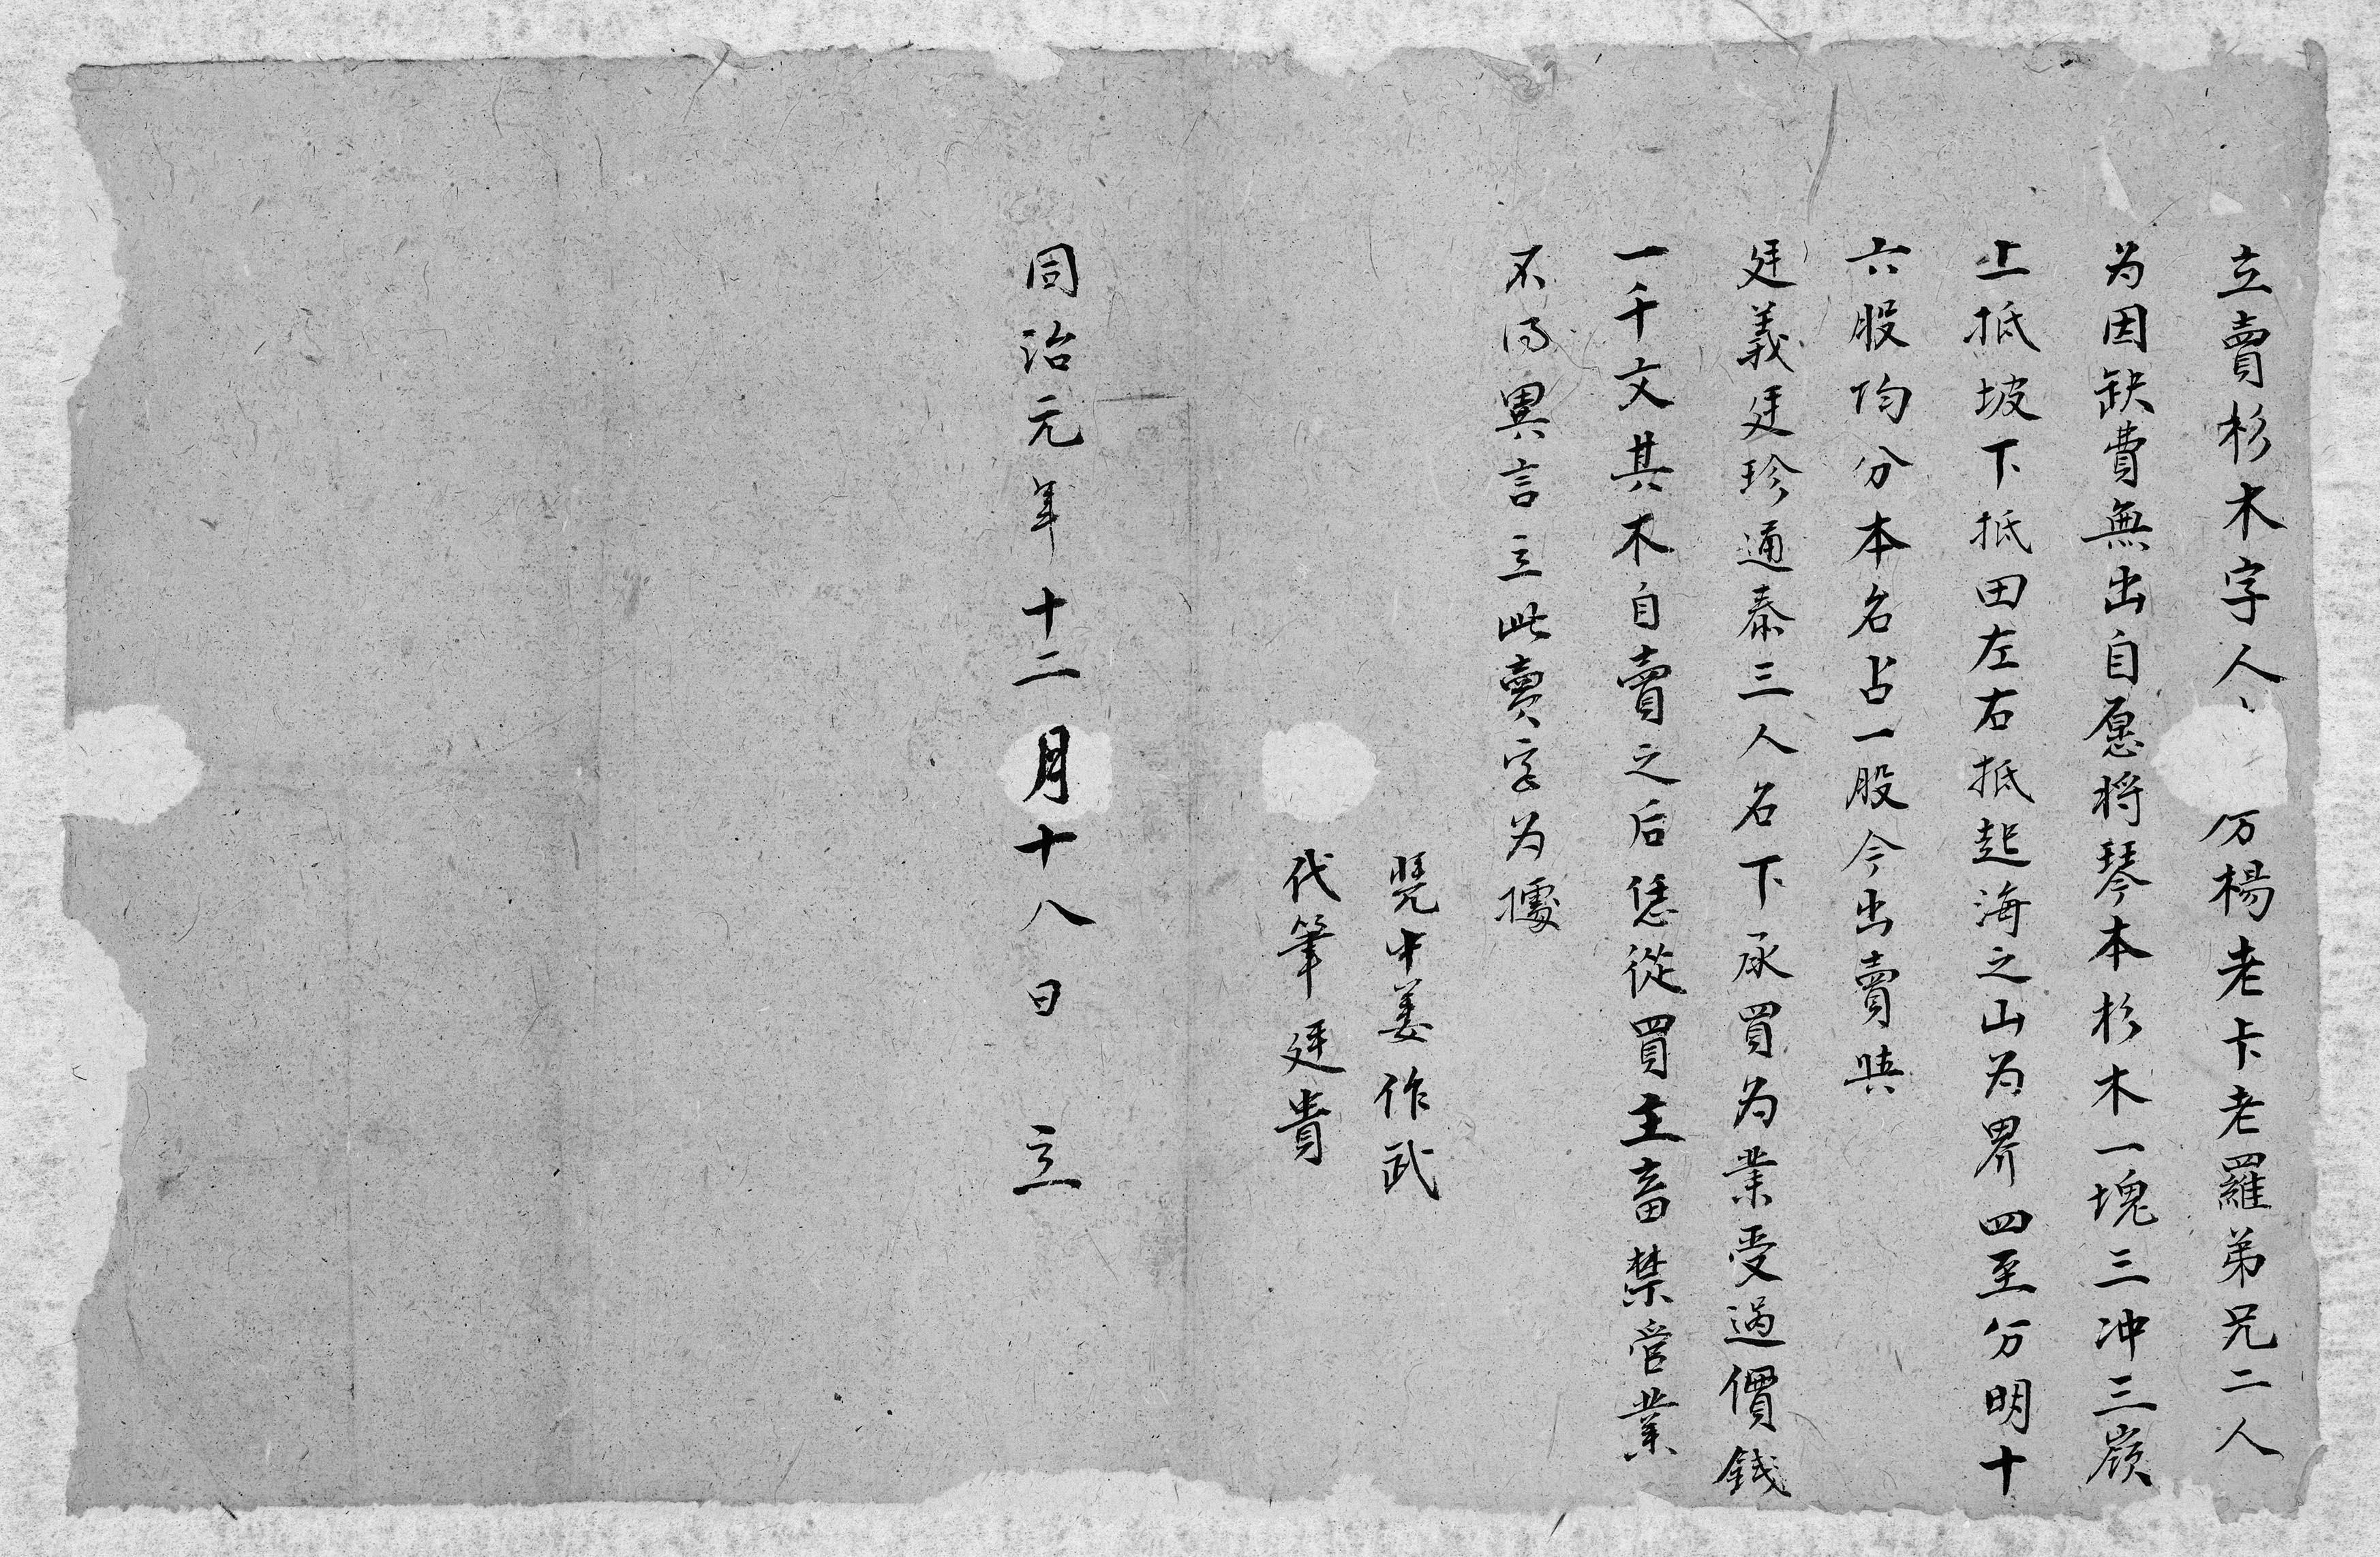 立賣杉木字人、 楊老卡老羅弟兄二人
为因缺費無出自愿将琴本杉木一塊三冲三嶺
上抵坡下抵田左右抵起海之山为界四至分明十
六股均分本名占一股今出賣與
廷義廷珍通泰三人名下承買为業受過價錢
一千文其木自賣之后凭從買主畜禁管業
不得異言立此賣字为據
凴中姜作武
代筆廷貴
同治元年十二月十八日 立